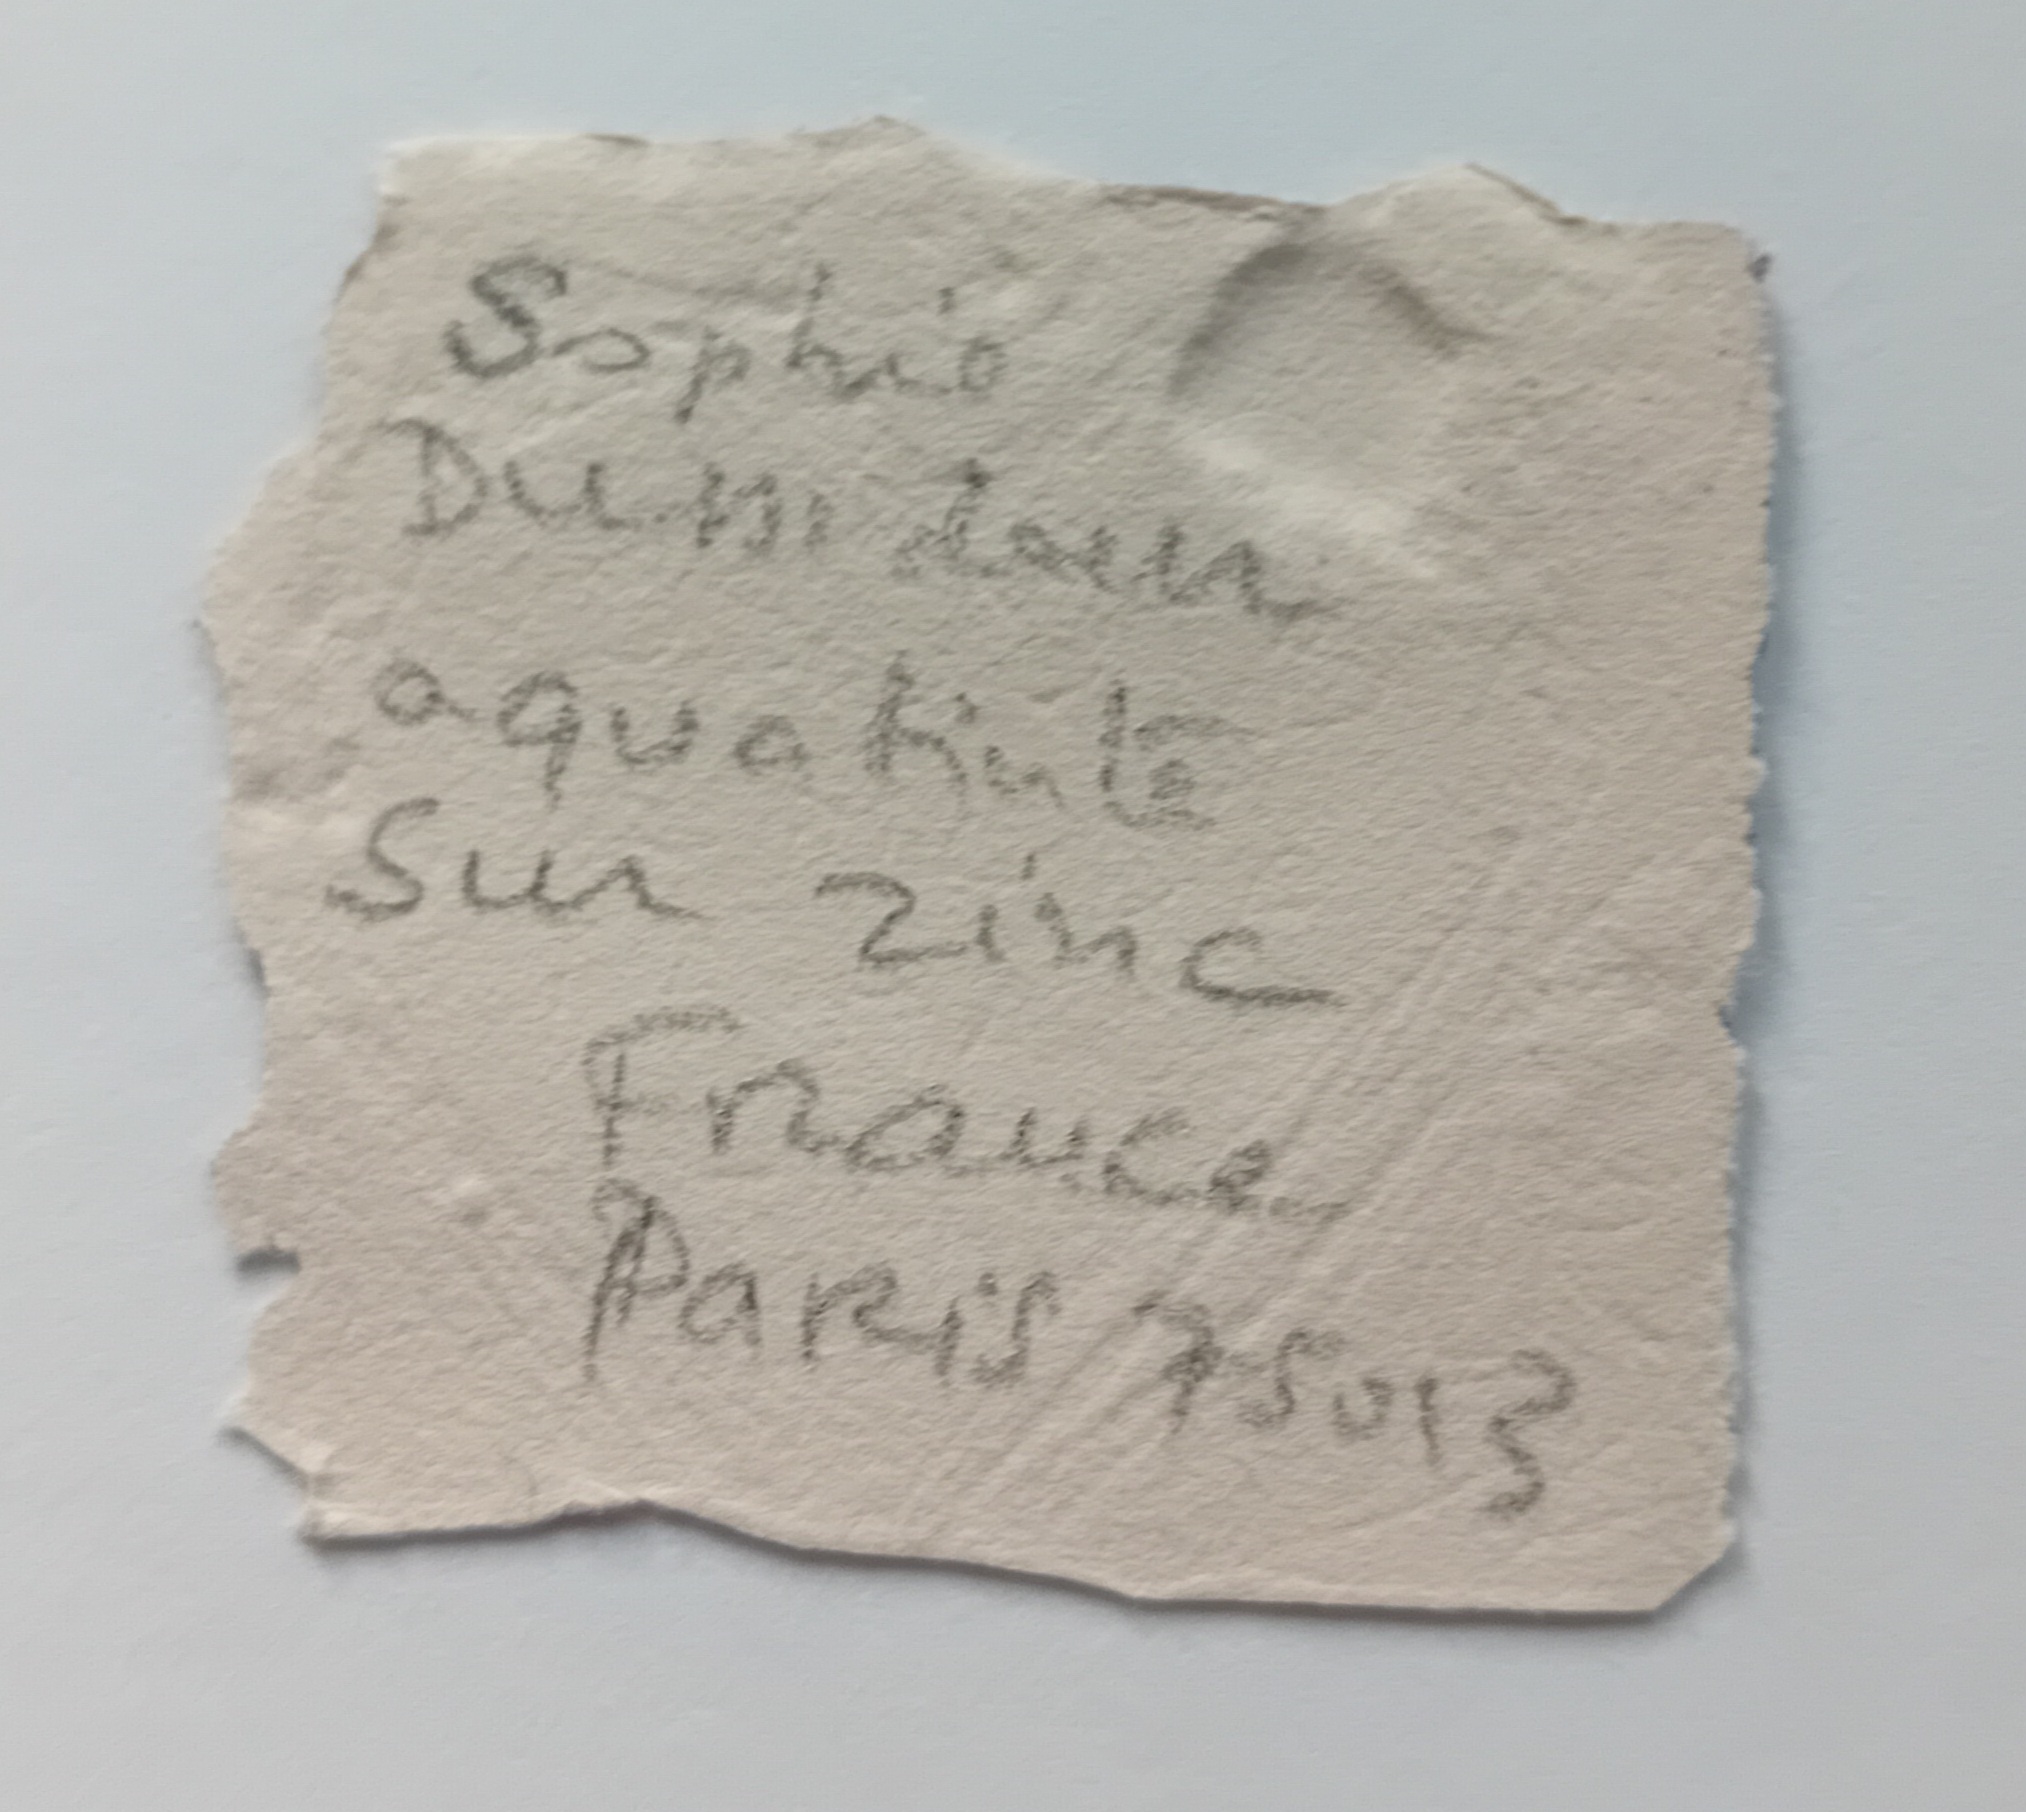 Sophie
aquatinte
sur zinc
France
Paris 75013